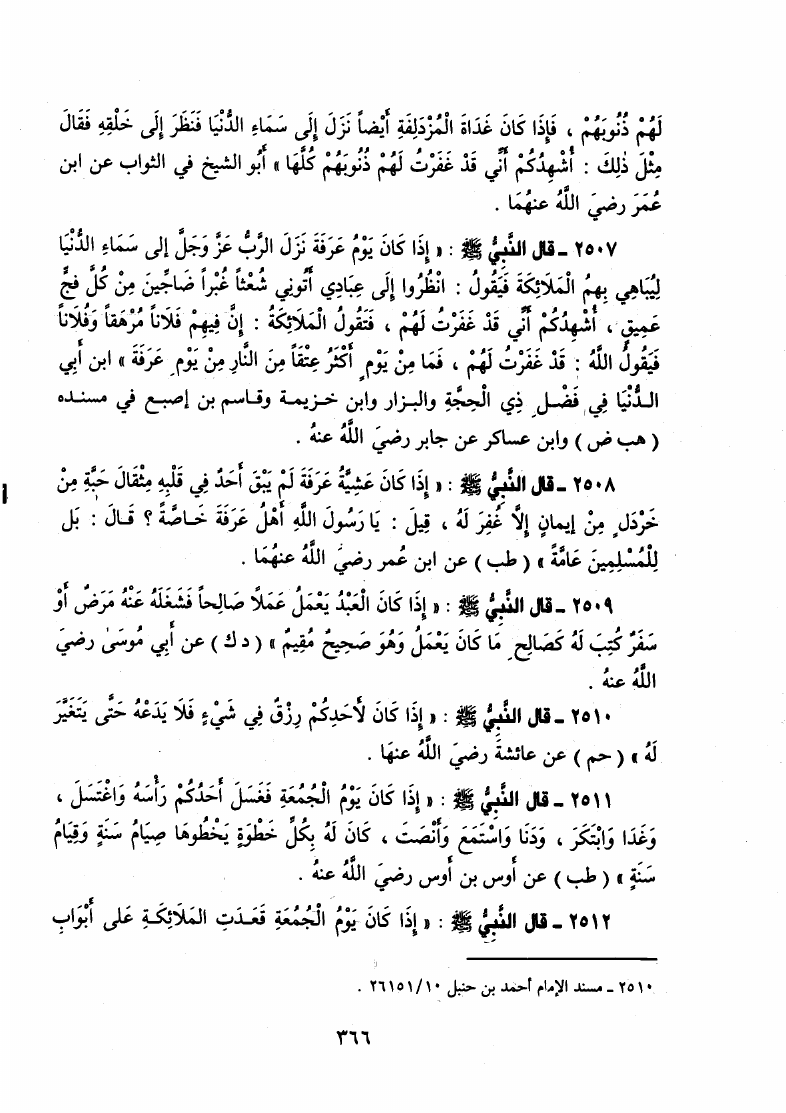 لَهُمْ ذُنُوبَهُمْ ، فَإِذَا كَانَ غَدَاةَ الْمُزْدَلِفَةِ أَيْضاً نَزَلَ إِلَى سَمَاءِ الدُّنْيَا فَنَظَرَ إِلَى خَلْقِهِ فَقَالَ
مِثْلَ ذٰلِكَ : أُشْهِدُكُمْ أَنِّي قَدْ غَفَرْتُ لَهُمْ ذُنُوبَهُمْ كُلَّهَا » أَبُو الشيخ في الثواب عن ابن
عُمَرَ رضيَ اللَّهُ عنهُمَا .
٢٥٠٧ ـ قال النَّبِيُّ ﷺ : « إِذَا كَانَ يَوْمُ عَرَفَةَ نَزَلَ الرَّبُّ عَزَّ وَجَلَّ إلى سَمَاءِ الدُّنْيَا
لِيُبَاهِي بِهِمُ الْمَلَائِكَةَ فَيَقُولُ : انْظُرُوا إِلَى عِبَادِي أَتَوْنِي شُعْثاً غُبْراً ضَاجِّينَ مِنْ كُلِّ فَجٍّ
عَمِيقٍ ، أُشْهِدُكُمْ أَنِّي قَدْ غَفَرْتُ لَهُمْ ، فَتَقُولُ الْمَلَائِكَةُ : إِنَّ فِيهِمْ فُلَاناً مُرْهَقاً وَفُلَاناً
فَيَقُولُ اللَّهُ : قَدْ غَفَرْتُ لَهُمْ ، فَمَا مِنْ يَوْمٍ أَكْثَرُ عِتْقاً مِنَ النَّارِ مِنْ يَوْمِ عَرَفَةَ » ابن أَبِي
الدُّنْيَا فِي فَضْلِ ذِي الْحِجَّةِ والبزار وابن خزيمة وقاسم بن إصبع في مسنده
( هب ض ) وابن عساكر عن جابر رضيَ اللَّهُ عنهُ .
٢٥٠٨ ـ قال النَّبِيُّ ﷺ : « إِذَا كَانَ عَشِيَّةُ عَرَفَةَ لَمْ يَبْقَ أَحَدٌ فِي قَلْبِهِ مِثْقَالَ حَبَّةٍ مِنْ
خَرْدَلٍ مِنْ إِيمَانٍ إِلَّا غُفِرَ لَهُ ، قِيلَ : يَا رَسُولَ اللَّهِ أَهْلُ عَرَفَةَ خَاصَّةً ؟ قَالَ : بَل
لِلْمُسْلِمِينَ عَامَّةً » ( طب ) عن ابن عُمر رضيَ اللَّهُ عنهُمَا .
٢٥٠٩ ـ قال النَّبِيُّ ﷺ : « إِذَا كَانَ الْعَبْدُ يَعْمَلُ عَمَلًا صَالِحاً فَشَغَلَهُ عَنْهُ مَرَضٌ أَوْ
سَفَرٌ كُتِبَ لَهُ كَصَالِحِ مَا كَانَ يَعْمَلُ وَهُوَ صَحِيحٌ مُقِيمٌ » ( د ك ) عن أَبِي مُوسَىٰ رضيَ
اللَّهُ عنهُ .
٢٥١٠ ـ قال النَّبِيُّ ﷺ : « إِذَا كَانَ لِأَحَدِكُمْ رِزْقٌ فِي شَيْءٍ فَلَا يَدَعْهُ حَتَّى يَتَغَيَّرَ
لَهُ » ( حم ) عن عائشةَ رضيَ اللَّهُ عنهَا .
٢٥١١ ـ قال النَّبِيُّ ﷺ : « إِذَا كَانَ يَوْمُ الْجُمُعَةِ فَغَسَلَ أَحَدُكُمْ رَأْسَهُ وَاغْتَسَلَ ،
وَغَدَا وَابْتَكَرَ ، وَدَنَا وَاسْتَمَعَ وَأَنْصَتَ ، كَانَ لَهُ بِكُلِّ خَطْوَةٍ يَخْطُوهَا صِيَامُ سَنَةٍ وَقِيَامُ
سَنَةٍ » ( طب ) عن أوس بن أوس رضيَ اللَّهُ عنهُ .
٢٥١٢ ـ قال النَّبِيُّ ﷺ : « إِذَا كَانَ يَوْمُ الْجُمُعَةِ قَعَدَتِ الْمَلَائِكَةِ عَلى أَبْوَابِ
٢٥١٠ ـ مسند الإمام أحمد بن حنبل ٢٦١٥١/١٠ .
٣٦٦